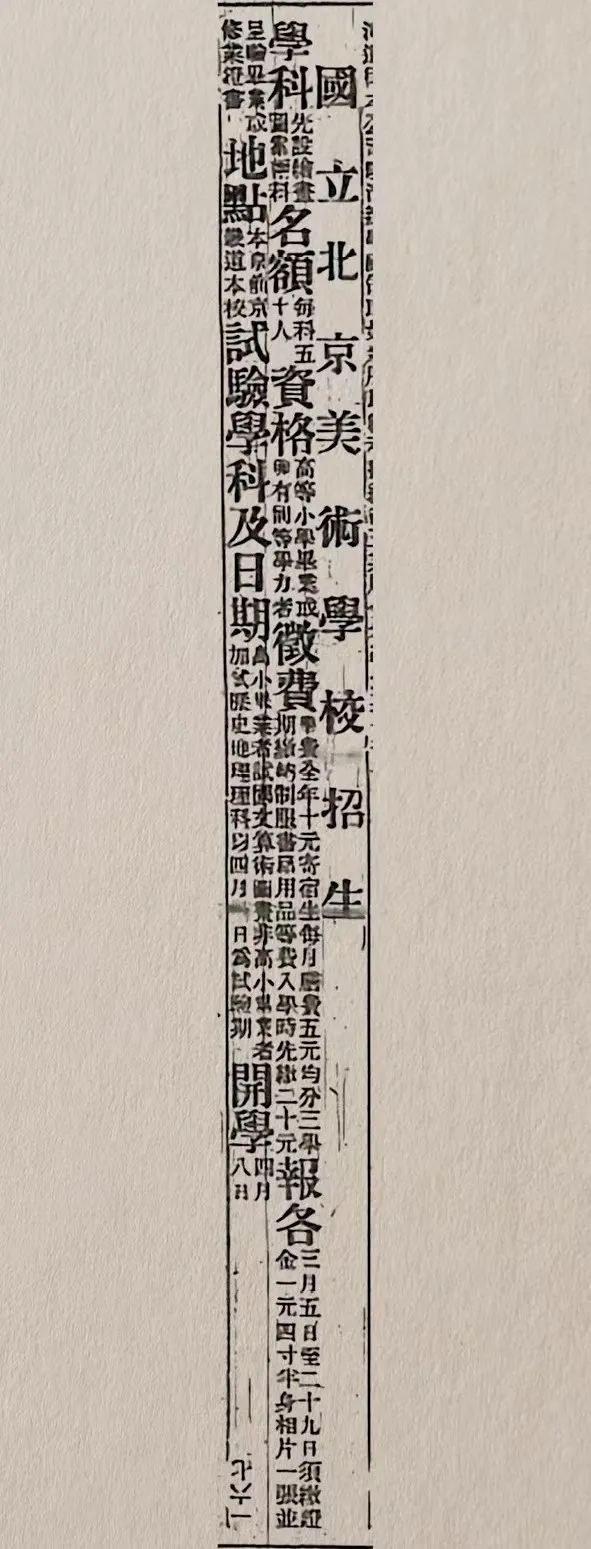 國立北京美術學校招生
學科
先設繪畫
圖案兩科
名額
每科五
十人
資格
高等小學畢業或
有同等學力者
徵費
學費全年十元寄宿生每月膳費五元均分三學
期繳納制服書籍用品等費入學時先繳二十元
報各
三月五日至二十九日須繳證
金一元四寸半身相片一張並
呈驗畢業或
修業證書
地點
本京前京
畿道本校
試驗學科及日期
高小畢業者試國文算術圖畫非高小畢業者
加試歷史地理理科以四月一日為試驗期
開學
四月
八日
一六七